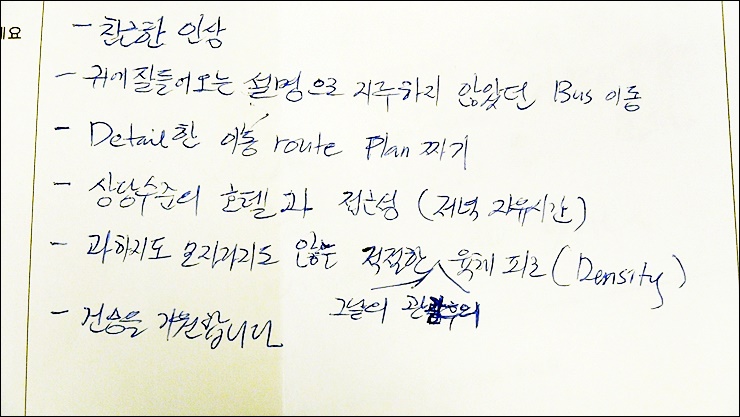 세요
- 친근한 인상
- 귀에 잘들어오는 설명으로 지루하지 않았던 Bus 이동
- Detail한 이동 route Plan 짜기
- 상당수준의 호텔과 접근성 (저녁 자유시간)
- 과하지도 모자라지도 않는 적절한 육체 피로 (Density)
그날의 관광후의
- 건승을 기원합니다